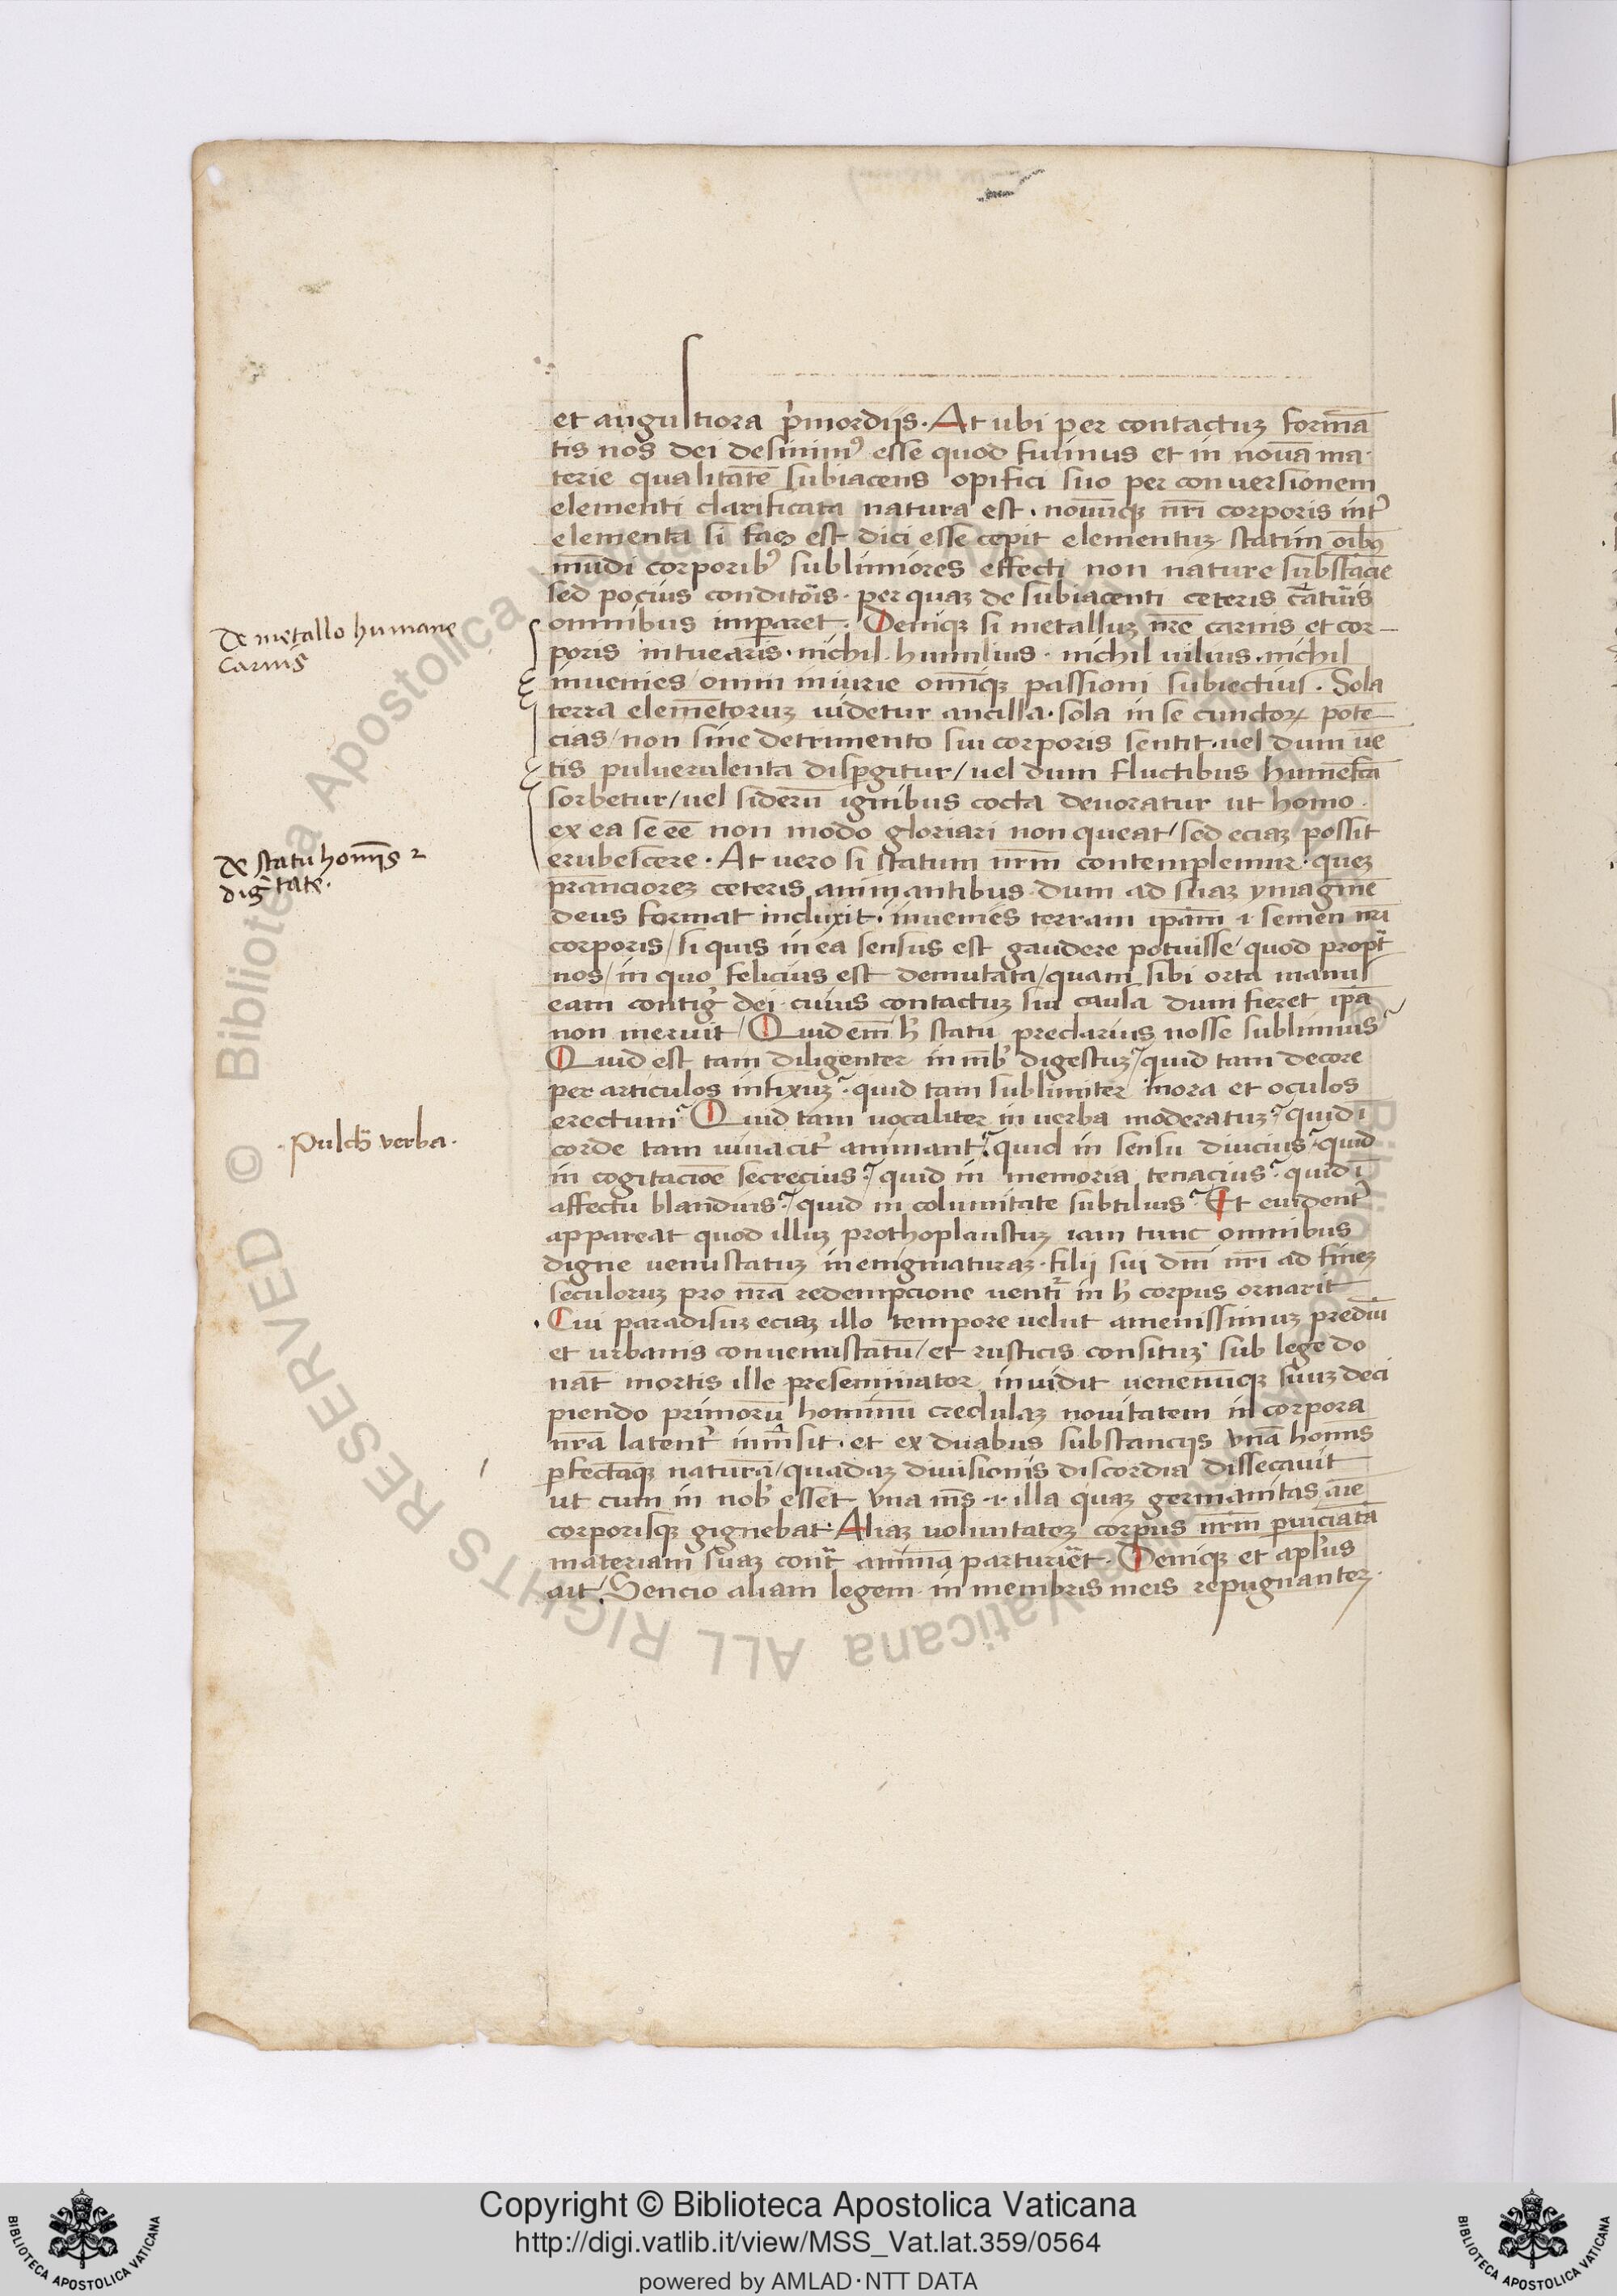 et angustiora p̓mordijs. At ubi per contactuꝫ formā
tis nos dei desinimꝰ esse quod fuimus et in nouā ma-
terie qualitatē subiacens opifici suo per conuersionem
elementi clarificata natura est. nouūqꝫ nr̄i corporis int̓
elementa si faꝫ est dici esse cepit elementuꝫ statim oībꝰ
mūdi corporibꝰ sublimiores effecti non nature substācie
sed pocius conditoris. per quaꝫ de subiacenti ceteris
omnibus imparet. Deniqꝫ si metalluꝫ nr̄e carnis et cor-
poris intuearis. nichil humilius. nichil uilius. nichil
inuenies omni iniurie omīqꝫ passioni subiectius. Sola
terra elemētoruꝫ uidetur ancilla. sola in se cunctoꝝ potē-
cias/ non sine detrimento sui corporis sentit. uel dum uē
tis puluerulenta disp̱gitur/ uel dum fluctibus humefcā
sorbetur/ uel siderū ignibus cocta deuoratur ut homo.
ex ea se eē non modo gloriari non queat/ sed eciaꝫ possit
erubescere. At uero si statum nr̄m contemplemur. queꝫ
ceteris animantibus. dum ad suaꝫ ymaginē
deus format induxit. inuenies terram ip̄am .i. semen nr̄i
corporis/ si quis in ea sensus est gaudere potuisse/ quod propt̄
nos/ in quo felicius est demutata/ quam sibi orta manus
eam contig̓ dei. cuius contactuꝫ sui causa dum fieret ip̄a
non meruit/ Quid em̄ hͦ statu preclarius nosse sublimius?
Quid est tam diligenter in mēbꝰ digestuꝫ? quid tam decore
per articulos infixuꝫ? quid tam sublimiter in ora et oculos
erectum? Quid tam uocaliter in uerba moderatuꝫ? quid ī
corde tam uiuacit̓ animant? quid in sensu diucius? quid
in cogitacīoe secrecius? quid in memoria tenacius? quid ī
affectu blandius? quid in columitate subtilius? Et euident̓
appareat quod illuꝫ prothoplaustuꝫ iam tunc omnibus
digne uenustatuꝫ in enigmaturaꝫ. filij sui dn̄i nr̄i ad fineꝫ
seculoruꝫ pro nr̄a redempcione uentͥ in hͦ corpus ornarit
.Cui paradisuꝫ eciaꝫ illo tempore uelut amenissimuꝫ prediū
et urbanis conuenustatū/ et rusticis consituꝫ sub lege do
nat̄ mortis ille preseminator inuidit uenenūqꝫ suuꝫ deci
piendo primorū hominū credulaꝫ nouitatem in corpora
nr̄a latent̓ inm̓sit. et ex duabus substancijs vnā homīs
p̱fectāqꝫ naturā/ quadaꝫ diuisionis discordia dissecauit
ut cum in nobꝰ esset vna mēs .i. illa quaꝫ germanitas aīe
corporisqꝫ gignebat. Aliaꝫ uoluntateꝫ corpus nr̄m p̱uiciatā
materiam suaꝫ cont̄ animā parturiēt. Deniqꝫ et apl̓us
ait/ Sencio aliam legem in membris meis repugnanteꝫ.
De metallo humane
carnis
De statu homīs ⁊
digͥtate.
.Pulchͣ verba.
Copyright © Biblioteca Apostolica Vaticana
http://digi.vatlib.it/view/MSS_Vat.lat.359/0564
powered by AMLAD·NTT DATA
BIBLIOTECA APOSTOLICA VATICANA
BIBLIOTECA APOSTOLICA VATICANA
© Biblioteca Apostolica Vaticana ALL RIGHTS RESERVED